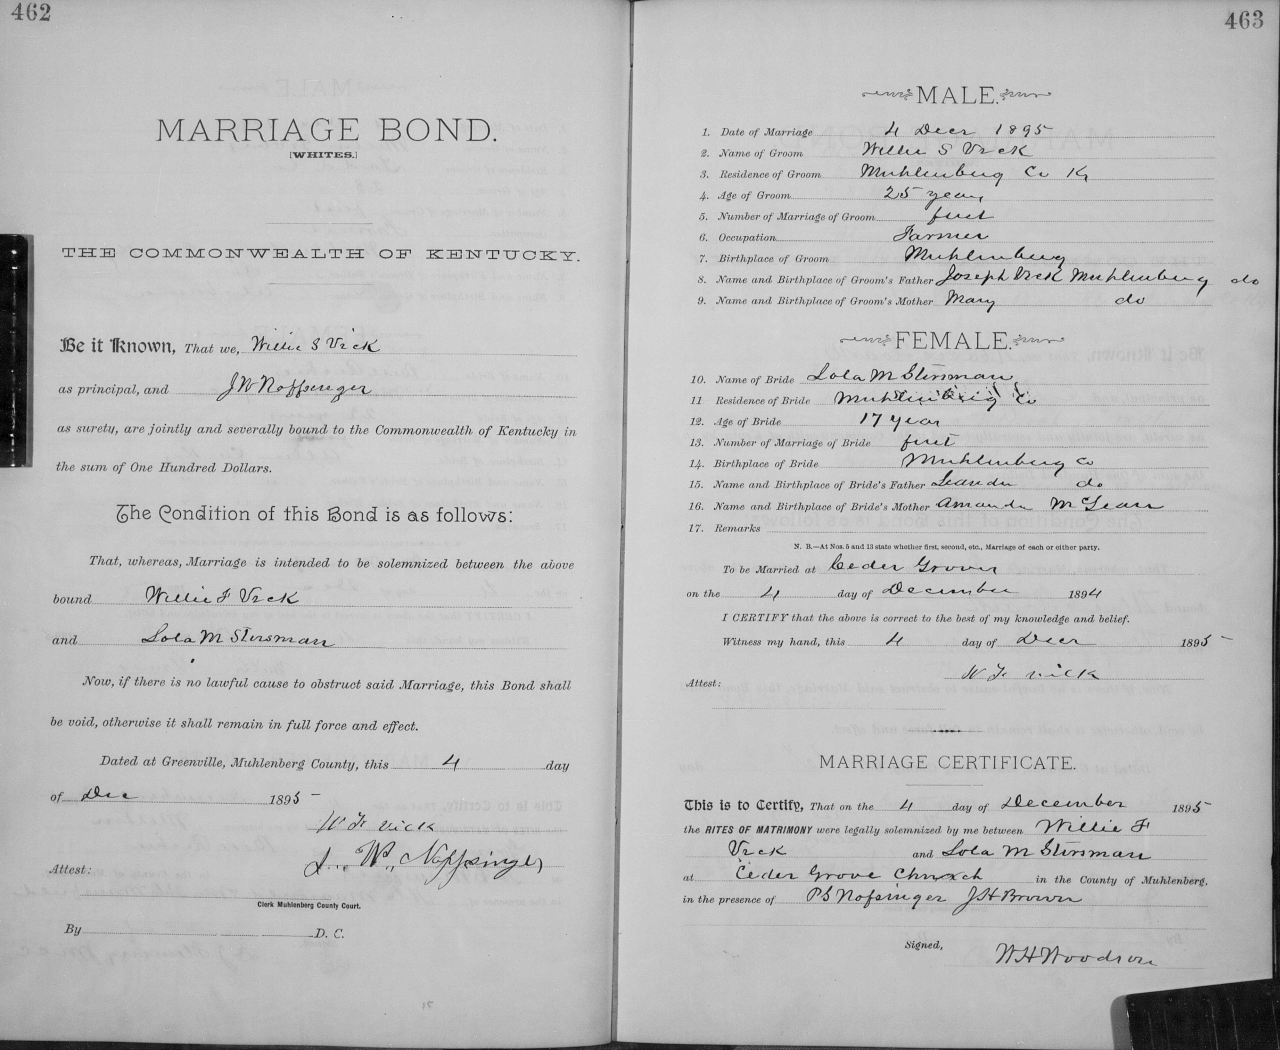 462
MARRIAGE BOND.
[WHITES.]
THE COMMONWEALTH OF KENTUCKY.
Be it Known, That we, Willie S Vick
as principal, and J W Noffsinger
as surety, are jointly and severally bound to the Commonwealth of Kentucky in
the sum of One Hundred Dollars.
The Condition of this Bond is as follows:
That, whereas, Marriage is intended to be solemnized between the above
bound Willie F Vick
and Lola M Stirsman
Now, if there is no lawful cause to obstruct said Marriage, this Bond shall
be void, otherwise it shall remain in full force and effect.
Dated at Greenville, Muhlenberg County, this 4 day
of Dec 1895
W F Vick
J. W. Noffsinger
Attest:
Clerk Muhlenberg County Court.
By D. C.
463
MALE.
1. Date of Marriage 4 Decr 1895
2. Name of Groom Willie S Vick
3. Residence of Groom Muhlenburg Co Ky
4. Age of Groom 25 years
5. Number of Marriage of Groom first
6. Occupation Farmer
7. Birthplace of Groom Muhlenburg
8. Name and Birthplace of Groom's Father Joseph Vick Muhlenburg do
9. Name and Birthplace of Groom's Mother Mary do
FEMALE.
10. Name of Bride Lola M Stirsman
11 Residence of Bride Muhlenburg Co
12. Age of Bride 17 year
13. Number of Marriage of Bride first
14. Birthplace of Bride Muhlenburg Co
15. Name and Birthplace of Bride's Father Leander do
16. Name and Birthplace of Bride's Mother Amanda McLean
17. Remarks
N. B.—At Nos. 5 and 13 state whether first, second, etc., Marriage of each or either party.
To be Married at Ceder Grove
on the 4 day of December 1894
I CERTIFY that the above is correct to the best of my knowledge and belief.
Witness my hand, this 4 day of Decr 1895
W F Vick
Attest:
MARRIAGE CERTIFICATE.
This is to Certify, That on the 4 day of December 1895
the RITES OF MATRIMONY were legally solemnized by me between Willie F
Vick and Lola M Stirsman
at Ceder Grove Church in the County of Muhlenberg,
in the presence of P S Nofsinger J H Brown
Signed,
W H Woodson